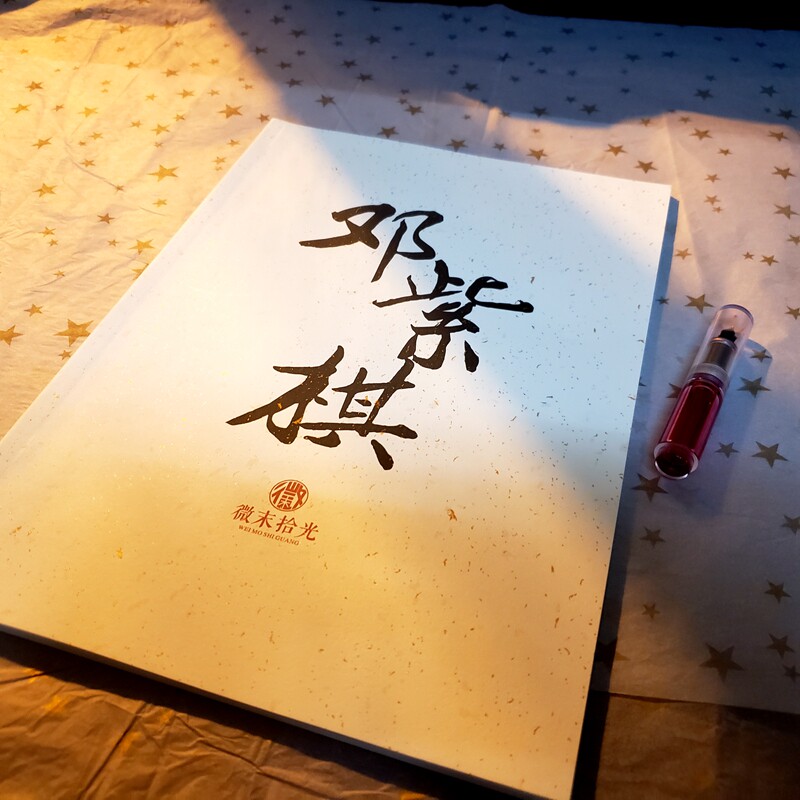 邓紫棋
微
微末拾光
WEI MO SHI GUANG